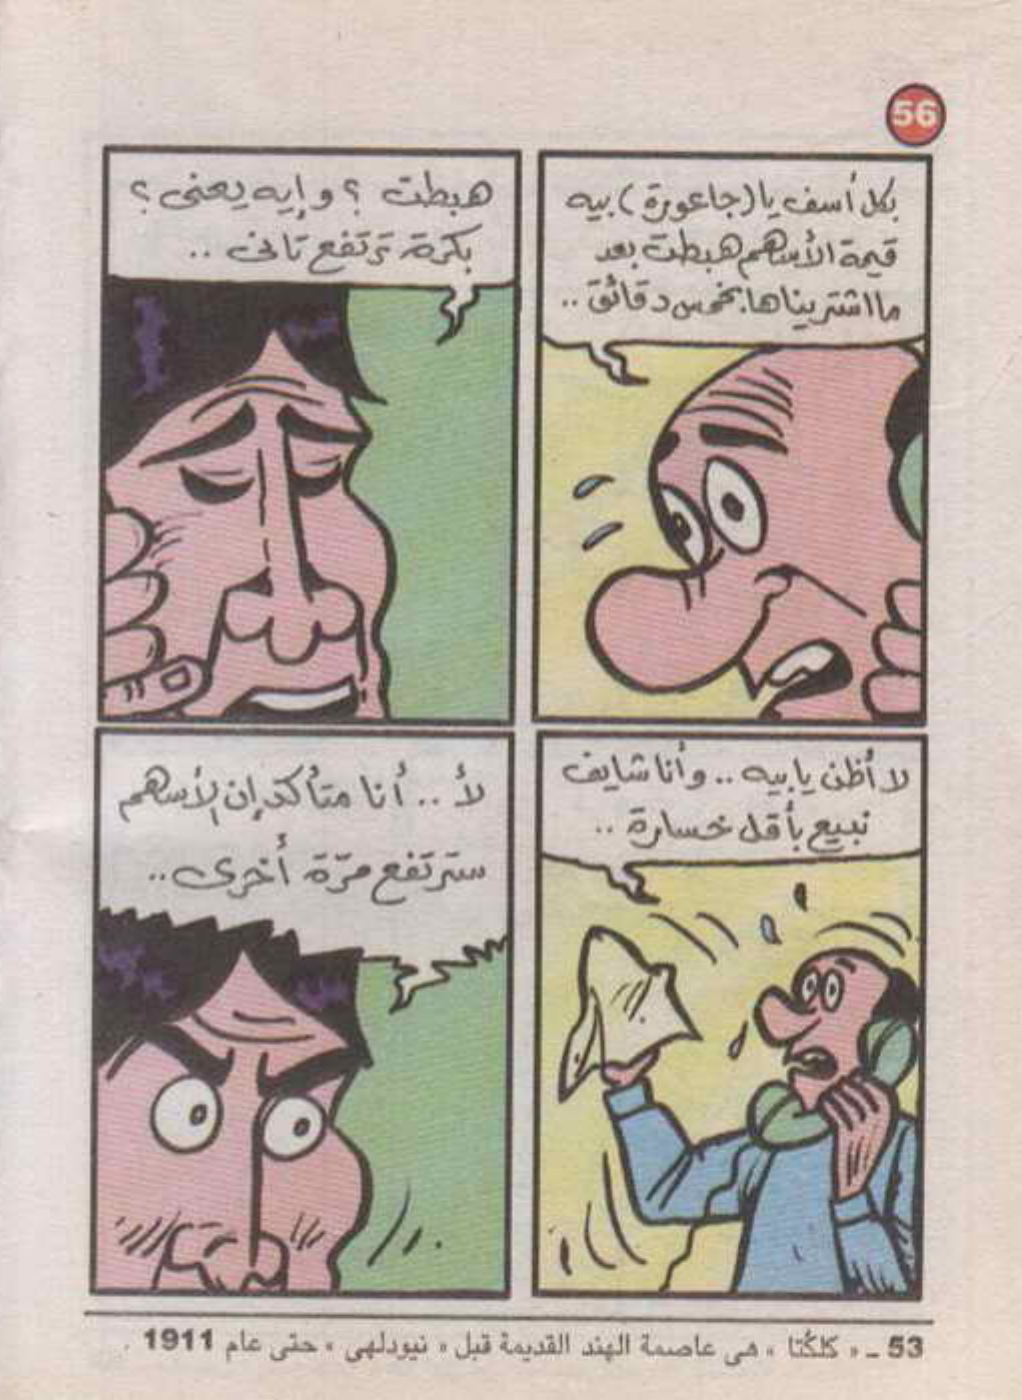 56
بكل أسف يا (جاعورة) بيه
قيمة الأسهم هبطت بعد
ما اشتريناها بخمس دقائق ..
هبطت ؟ و إيه يعنى ؟
بكرة ترتفع تانى ..
لا أظن يا بيه .. وأنا شايف
نبيع بأقل خسارة ..
لأ .. أنا متأكد إن الأسهم
سترتفع مرّة أخرى ..
53 ـ « كلكُتا » هى عاصمة الهند القديمة قبل « نيودلهى » حتى عام 1911 .